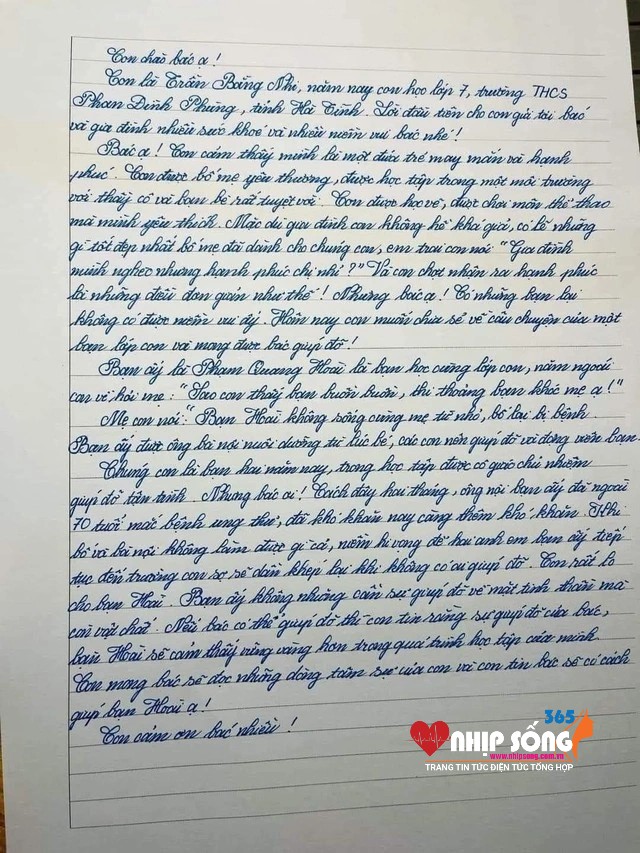 Con chào bác ạ!
Con là Trần Băng Nhi, năm nay con học lớp 7, trường THCS
Phan Đình Phùng, tỉnh Hà Tĩnh. Lời đầu tiên cho con gửi tới bác
và gia đình nhiều sức khoẻ và nhiều niềm vui bác nhé!
Bác ạ! Con cảm thấy mình là một đứa trẻ may mắn và hạnh
phúc. Con được bố mẹ yêu thương, được học tập trong một môi trường
với thầy cô và bạn bè rất tuyệt vời. Con được học vẽ, được chơi môn thể thao
mà mình yêu thích. Mặc dù gia đình con không hề khá giả, có lẽ những
gì tốt đẹp nhất bố mẹ đã dành cho chúng con, em trai con nói "Gia đình
mình nghèo nhưng hạnh phúc chị nhỉ?" Và con chợt nhận ra hạnh phúc
là những điều đơn giản như thế! Nhưng bác ạ! Có những bạn lại
không có được niềm vui ấy. Hôm nay con muốn chia sẻ về câu chuyện của một
bạn lớp con và mong được bác giúp đỡ!
Bạn ấy là Phạm Quang Hoài là bạn học cùng lớp con, năm ngoái
con về hỏi mẹ: "Sao con thấy bạn buồn buồn, thi thoảng bạn khóc mẹ ạ!"
Mẹ con nói: "Bạn Hoài không sống cùng mẹ từ nhỏ, bố lại bị bệnh
Bạn ấy được ông bà nội nuôi dưỡng từ lúc bé, các con nên giúp đỡ và động viên bạn.
Chúng con là bạn hai năm nay, trong học tập được cô giáo chủ nhiệm
giúp đỡ tận tình. Nhưng bác ơi! Cách đây hai tháng, ông nội bạn ấy đã ngoài
70 tuổi mắc bệnh ung thư, đã khó khăn nay càng thêm khó khăn. Khi
bố và bà nội không làm được gì cả, niềm hi vọng để hai anh em bạn ấy tiếp
tục đến trường con sợ sẽ dần khép lại khi không có ai giúp đỡ. Con rất lo
cho bạn Hoài. Bạn ấy không những cần sự giúp đỡ về mặt tinh thần mà
còn vật chất. Nếu bác có thể giúp đỡ thì con tin rằng sự giúp đỡ của bác,
bạn Hoài sẽ cảm thấy vững vàng hơn trong quá trình học tập của mình.
Con mong bác sẽ đọc những dòng tâm sự của con và con tin bác sẽ có cách
giúp bạn Hoài ạ!
Con cảm ơn bác nhiều!
365
NHỊP SỐNG
www.nhipsong.com.vn
TRANG TIN TỨC ĐIỆN TỨC TỔNG HỢP